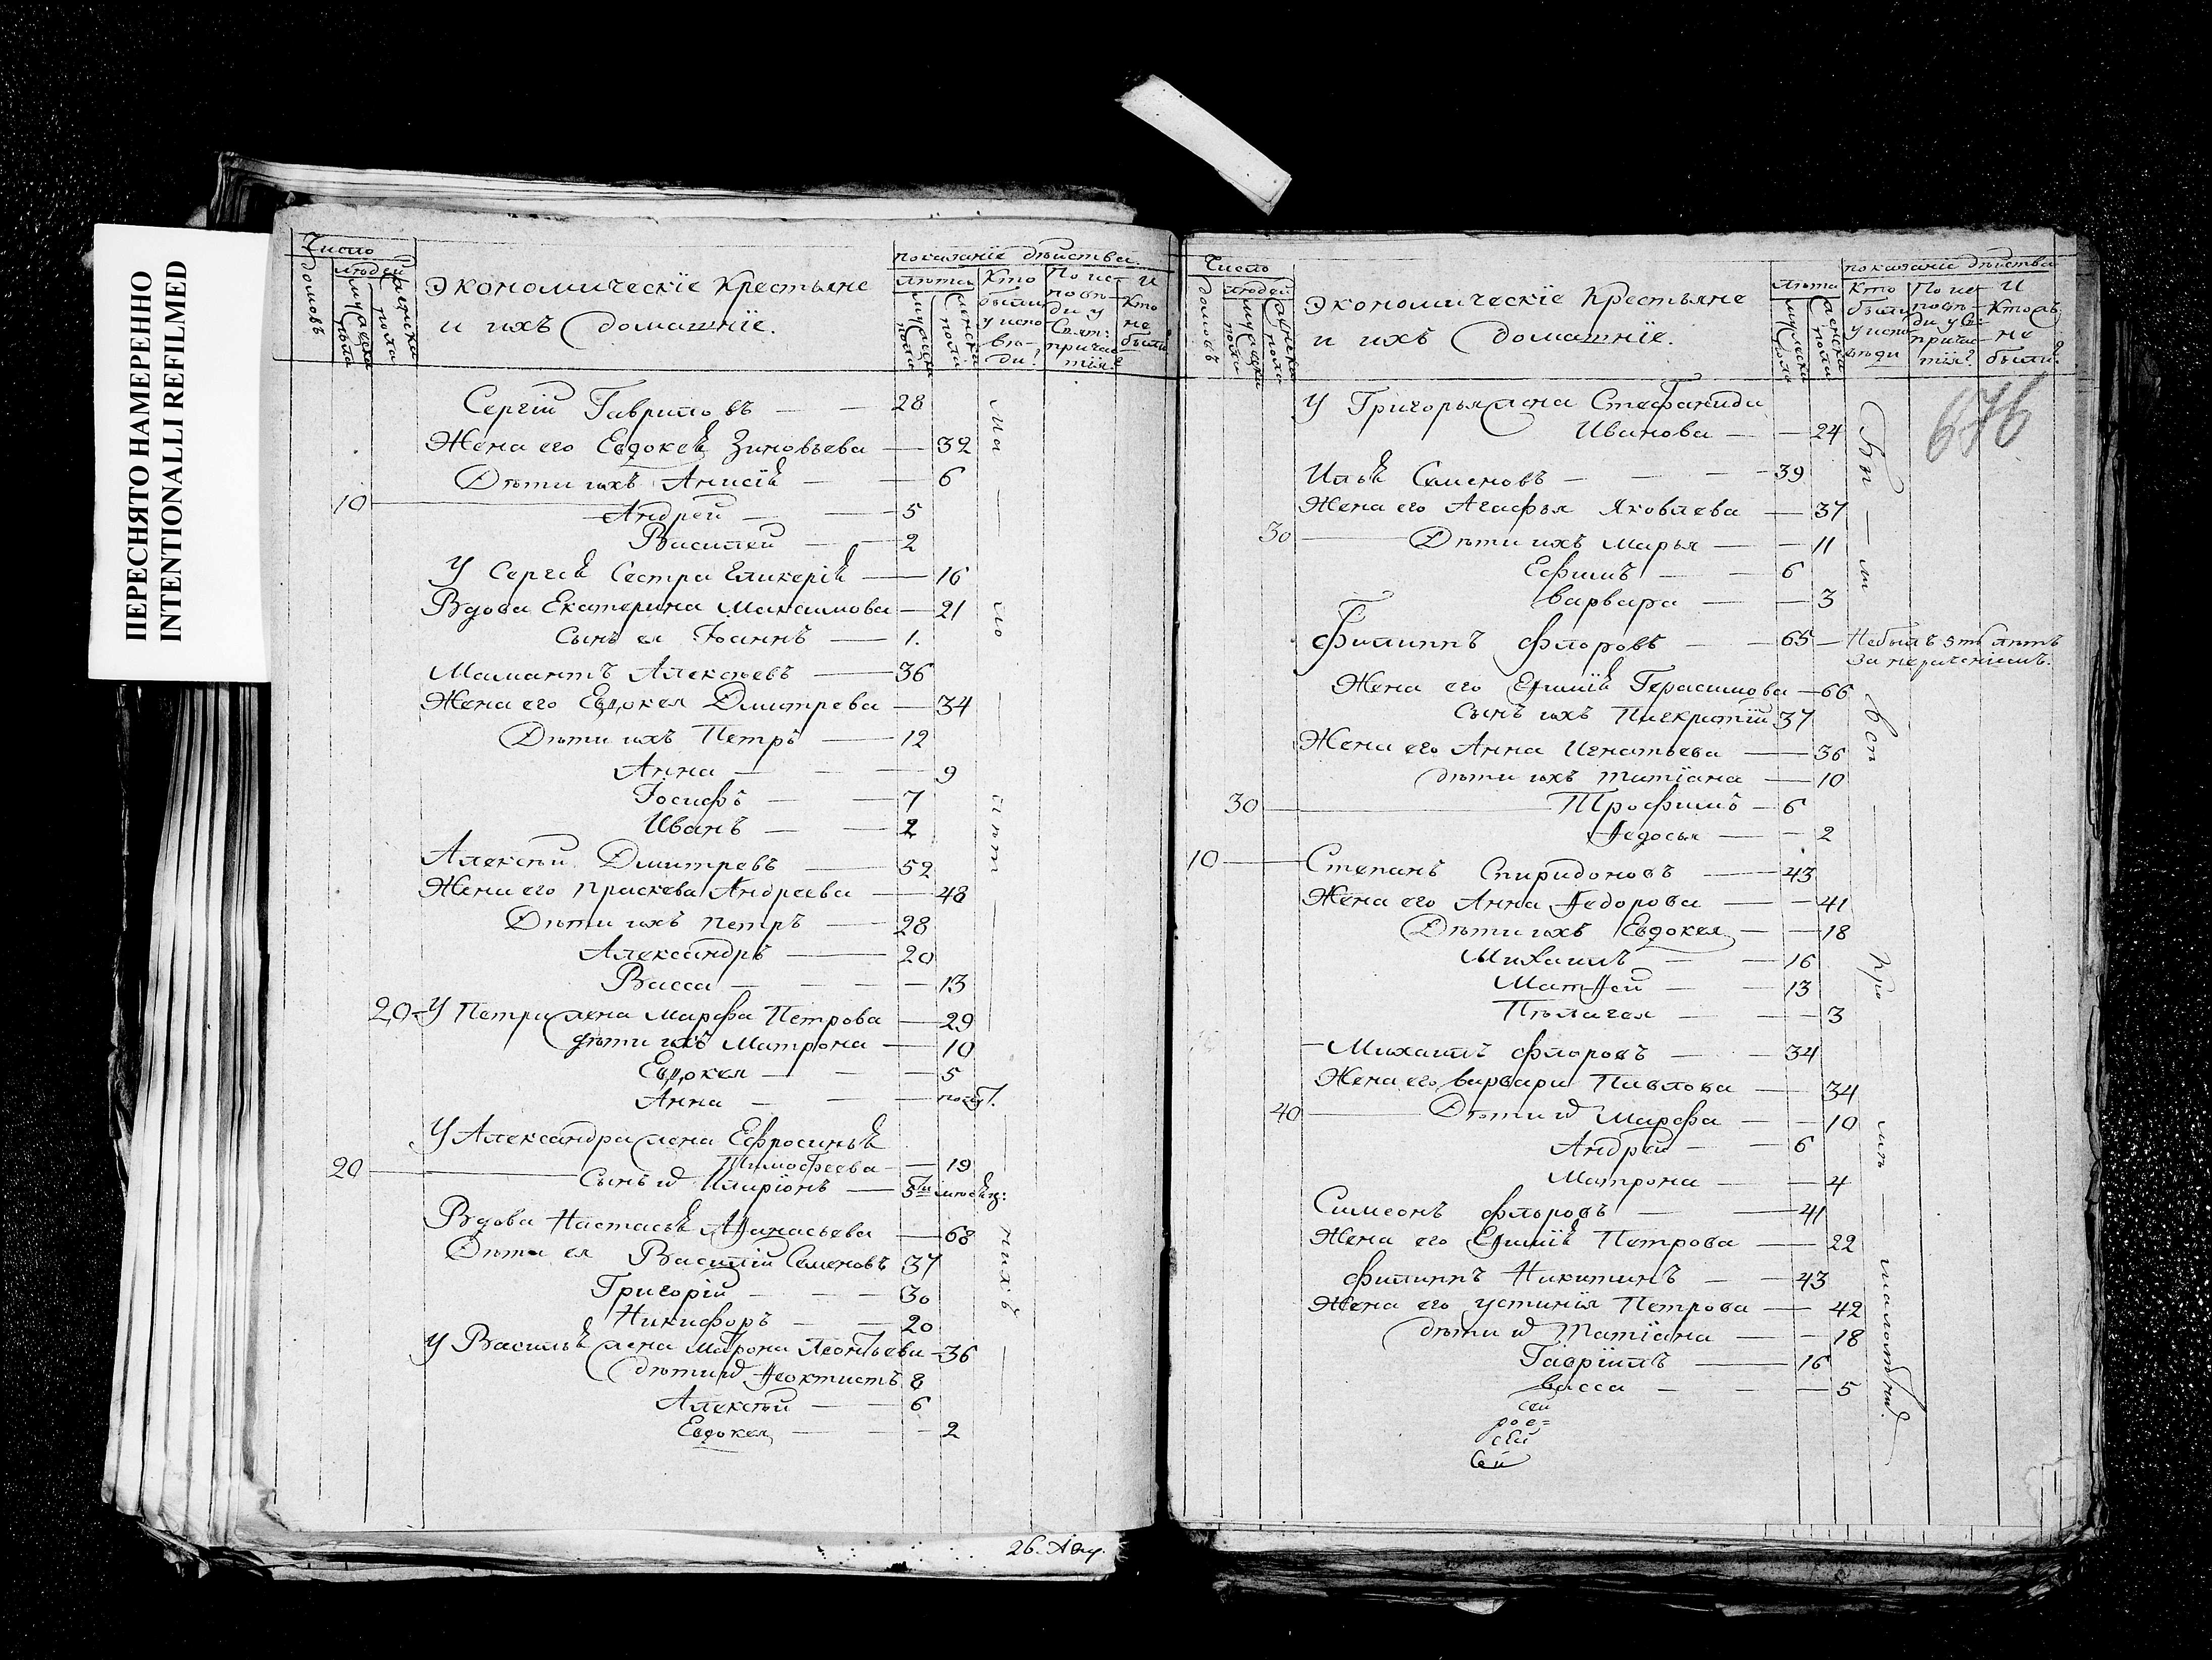 ПЕРЕСНЯТО НАМЕРЕННО
INTENTIONALLI REFILMED
Число
домовъ
людей
мужеска пола
женска пола
Экономическіе крестьяне
и ихъ домашніе.
показаніе дѣйства.
лѣта
мужеска пола
женска пола
Кто были у испо-вѣ-ди?
По ис-повѣ-ди у Свят: причас-тія?
И кто не были
Сергій Гавриловъ — 28
Жена его Евдокея Зиновьева — 32
Дѣти ихъ Анисія — 6
10 — Андрей — 5
Василей — 2
У Сергея Сестра Гликерія — 16
Вдова Екатерина Максимова — 21
Сынъ ея Іоаннъ — 1.
Мамантъ Алексѣевъ — 36
Жена его Евдокея Дмитрева — 34
Дѣти ихъ Петръ — 12
Анна — 9
Іосифъ — 7
Иванъ — 2
Алексѣй Дмитревъ — 52
Жена его Праскева Андреева — 48
Дѣти ихъ Петръ — 28
Александръ — 20
Васса — 13
20 У Петра жена Марфа Петрова — 29
дѣти ихъ Матрона — 10
Евдокея — 5
Анна —
У Александра жена Ефросинья
Тимофеева — 19
20 — Сынъ Иларіонъ —
Вдова Настасья Аѳанасьева — 68
Дѣти ея Василій Семеновъ 37
Григорій — 30
Никифоръ — 20
У Василья жена Матрона Леонтьева — 36
дѣти Ѳеоктистъ 8
Алексѣй — 6
Евдокея — 2
ма — ло — лѣт — нихъ
26. Авг.
Число
домовъ
людей
мужеска пола
женска пола
Экономическіе крестьяне
и ихъ домашніе.
показаніе дѣйства
лѣта
мужеска пола
женска пола
Кто были у испо-вѣди
По ис-повѣ-ди у Св: причас-тія?
И кто не были.
676
У Григорья жена Стефанида
Иванова — 24
Илья Семеновъ — 39
Жена его Агафья Яковлева — 37
30 — Дѣти ихъ Марья — 11
Ефимъ — 6
Варвара — 3
Филиппъ Флоровъ — 65 — Небылъ 5ть лѣтъ
за нераченіемъ.
Жена его Ефимія Герасимова — 66
Сынъ ихъ Панкратій 37
Жена его Анна Игнатьева — 36
дѣти ихъ Татіана — 10
30 — Трофимъ — 6
Ѳедосья — 2
10 — Степанъ Спиридоновъ — 43
Жена его Анна Ѳедорова — 41
Дѣти ихъ Евдокея — 18
Михаилъ — 16
Матѳей — 13
Пелагея — 3
Михаилъ Флоровъ — 34
Жена его Варвара Павлова — 34
40 — Дѣти Марфа — 10
Андрей — 6
Матрона — 4
Симеонъ Флоровъ — 41
Жена его Ефимія Петрова — 22
Филиппъ Никитинъ — 43
Жена его Устинія Петрова — 42
дѣти Татіана — 18
Гавріилъ — 16
Васса — 5